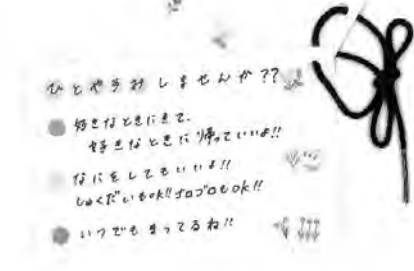 ひとやすみ しませんか??
好きなときにきて、
好きなときに帰っていいよ!!
なにをしてもいいよ!!
しゅくだいもok!!ゴロゴロもok!!
いつでもまってるね!!